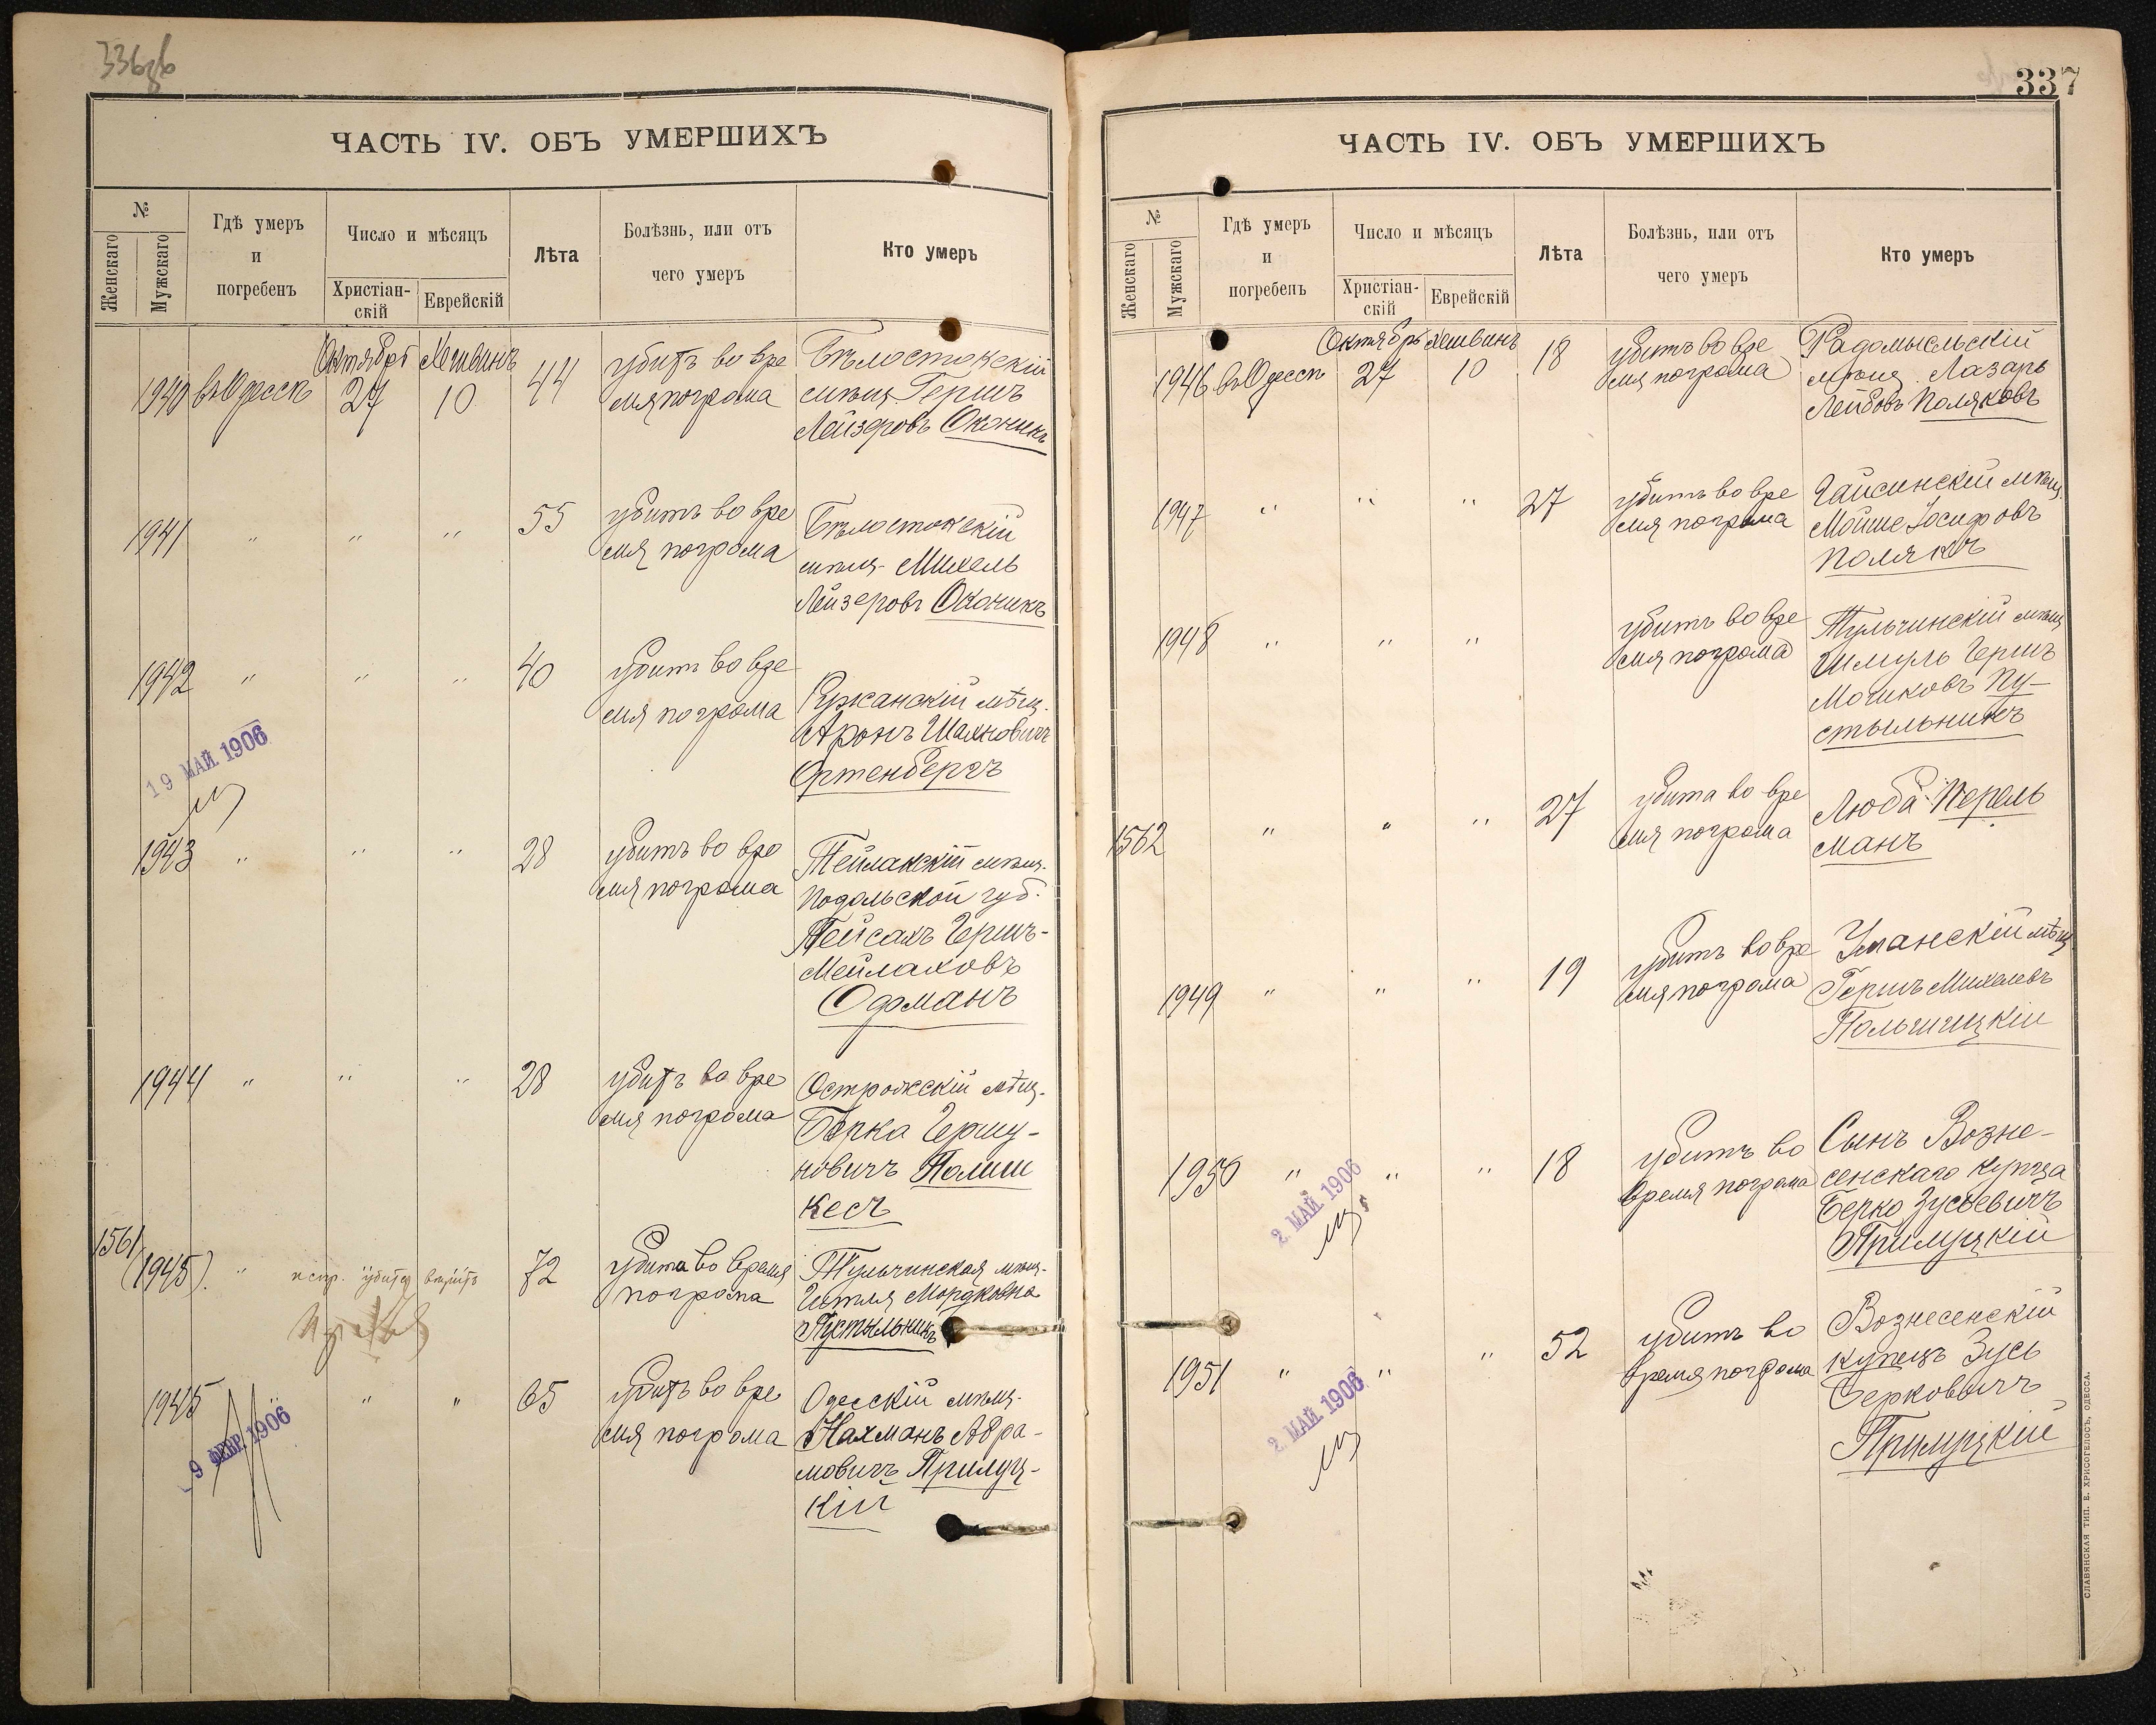 336об
ЧАСТЬ IV. ОБЪ УМЕРШИХЪ
№
Женскаго
Мужскаго
Гдѣ умеръ
и
погребенъ
Число и мѣсяцъ
Христіан-
скій
Еврейскій
Лѣта
Болѣзнь, или отъ
чего умеръ
Кто умеръ
Октябрь Хешванъ
1940 въ Одессѣ 27 10 44 убитъ во вре
мя погрома
Бѣлостокскій
мѣщ. Гершъ
Лейзеровъ Оконикъ
1941 " " " 55 убитъ во вре
мя погрома
Бѣлостокскій
мѣщ. Михель
Лейзеровъ Оконикъ
1942 " " " 40 убитъ во вре
мя погрома
Ружанскій мѣщ.
Аронъ Шахновичъ
Ортенбергъ
19 МАЙ 1906
1943 " " " 28 убитъ во вре
мя погрома
мѣщ.
Подольской губ.
Пейсахъ Гершъ-
Мейлаховъ
Одоманъ
1944 " " " 28 убитъ во вре
мя погрома
Острожскій мѣщ.
Берка Гершу-
новичъ Полши
кесъ
1561
(1945). " испр. убита вмѣстѣ 72 убита во время
погрома
Тульчинская мѣщ.
Мордковна
Пустыльникъ
1945 " " " 65 убитъ во вре
мя погрома
Одесскій мѣщ.
Нахманъ Абра-
мовичъ Прилуц-
кій
9 ФЕВР. 1906
337
ЧАСТЬ IV. ОБЪ УМЕРШИХЪ
№
Женскаго
Мужскаго
Гдѣ умеръ
и
погребенъ
Число и мѣсяцъ
Христіан-
скій
Еврейскій
Лѣта
Болѣзнь, или отъ
чего умеръ
Кто умеръ
Октябрь Хешванъ
1946 въ Одессѣ 27 10 18 убитъ во вре
мя погрома
Радомысльскій
мѣщ. Лазарь
Лейбовъ Поляковъ
1947 " " " 27 убитъ во вре
мя погрома
Гайсинскій мѣщ.
Мойше Іосифовъ
Полякъ
1948 " " " убитъ во вре
мя погрома
Тульчинскій мѣщ
Шмуль Гершъ
Мошковъ Пу-
стыльникъ
1562 " " " 27 убита во вре
мя погрома
Люба Перель
манъ
1949 " " " 19 убитъ во вре
мя погрома
Уманскій мѣщ
Гершъ Михелевъ
Польчицкій
1950 " " " 18 убитъ во
время погрома
Сынъ Возне-
сенскаго купца
Берко Зусьевичъ
Прилуцкій
2. МАЙ 1906
1951 " " " 52 убитъ во
время погрома
Вознесенскій
купецъ Зусь
Берковичъ
Прилуцкій
2. МАЙ 1906
СЛАВЯНСКАЯ ТИП. Е. ХРИСОГЕЛОСЪ, ОДЕССА.